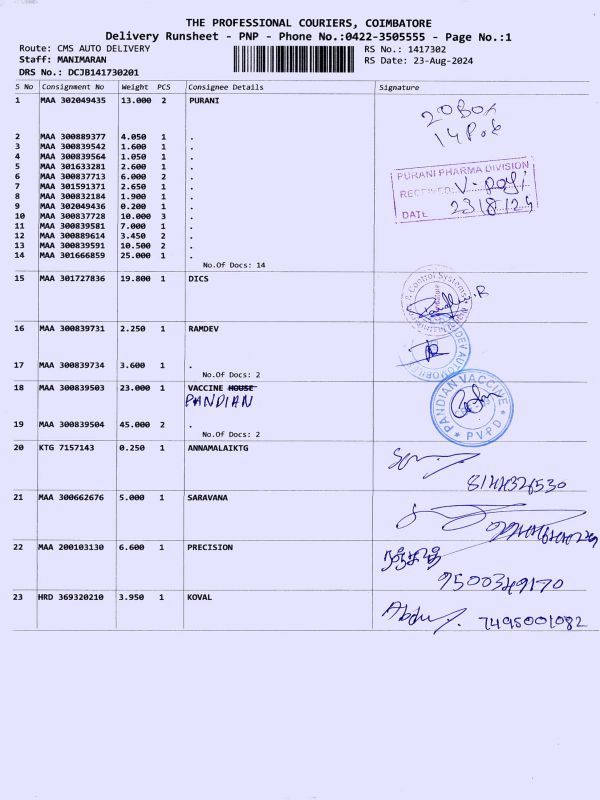 THE PROFESSIONAL COURIERS, COIMBATORE
Delivery Runsheet - PNP - Phone No.:0422-3505555 - Page No.:1
Route: CMS AUTO DELIVERY RS No.: 1417302
Staff: MANIMARAN RS Date: 23-Aug-2024
DRS No.: DCJB141730201
S No Consignment No Weight PCS Consignee Details Signature
1 MAA 302049435 13.000 2 PURANI
20 Box
2 MAA 300889377 4.050 1 .
3 MAA 300839542 1.600 1 .
4 MAA 300839564 1.050 1 .
5 MAA 301633281 2.600 1 .
6 MAA 300837713 6.000 2 .
7 MAA 301591371 2.650 1 .
8 MAA 300832184 1.900 1 .
9 MAA 302049436 0.200 1 .
10 MAA 300837728 10.000 3 .
11 MAA 300839581 7.000 1 .
12 MAA 300889614 3.450 2 .
13 MAA 300839591 10.500 2 .
14 MAA 301666859 25.000 1 .
No.Of Docs: 14
PURANI PHARMA DIVISION
RECEIVED
DATE 23/8/24
15 MAA 301727836 19.800 1 DICS
16 MAA 300839731 2.250 1 RAMDEV
17 MAA 300839734 3.600 1 .
No.Of Docs: 2
18 MAA 300839503 23.000 1 VACCINE HOUSE
PANDIAN
PANDIAN VACCINE
PVPD
19 MAA 300839504 45.000 2 .
No.Of Docs: 2
20 KTG 7157143 0.250 1 ANNAMALAIKTG
21 MAA 300662676 5.000 1 SARAVANA
22 MAA 200103130 6.600 1 PRECISION
9500349170
23 HRD 369320210 3.950 1 KOVAL
7495001082